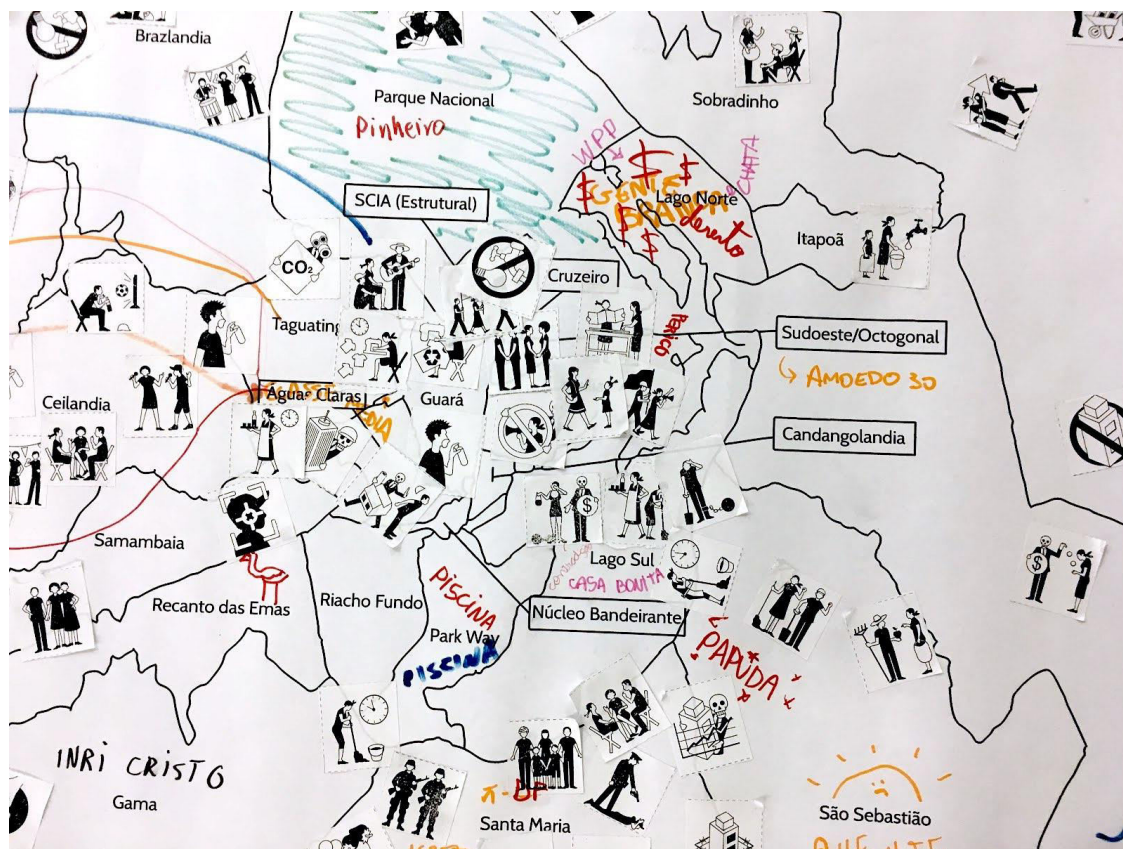 Brazlandia
Parque Nacional
Pinheiro
Sobradinho
WPP
$
$
$
GENTE
BRANCA
Lago Norte
CHATA
deserto
$
$
SCIA (Estrutural)
Itapoã
CO₂
Cruzeiro
Taguating
PERICO
Sudoeste/Octogonal
AMOEDO 30
Aguas Claras
CLASSE
MEDIA
Guará
Ceilandia
Candangolandia
$
Samambaia
Lago Sul
CASA BONITA
Recanto das Emas
Riacho Fundo
PISCINA
Park Way
PISCINA
Núcleo Bandeirante
$
PAPUDA
INRI CRISTO
Gama
DF
Santa Maria
São Sebastião